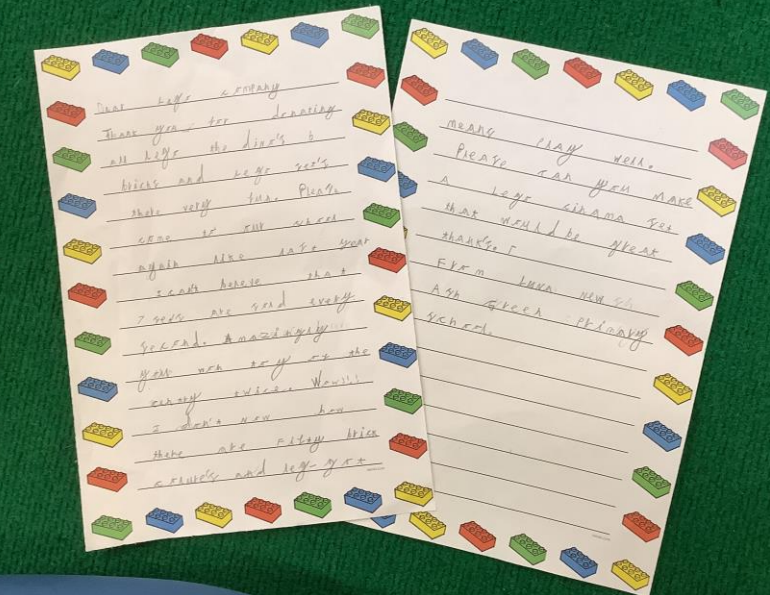 Dear Lego company
Thank you for donating
all Lego the dino's &
bricks and Lego set's
there very fun. Please
come to our school
again like last year
I cant beleve that
7 sets are sold every
second. Amazingly
you won toy of the
century twice. Wow!!!
I don't now how
there are brick
and leg-got
means play well.
Please can you make
a Lego cinama set
that would be great
thank's.
From Luna
Ash Green Primary
school.